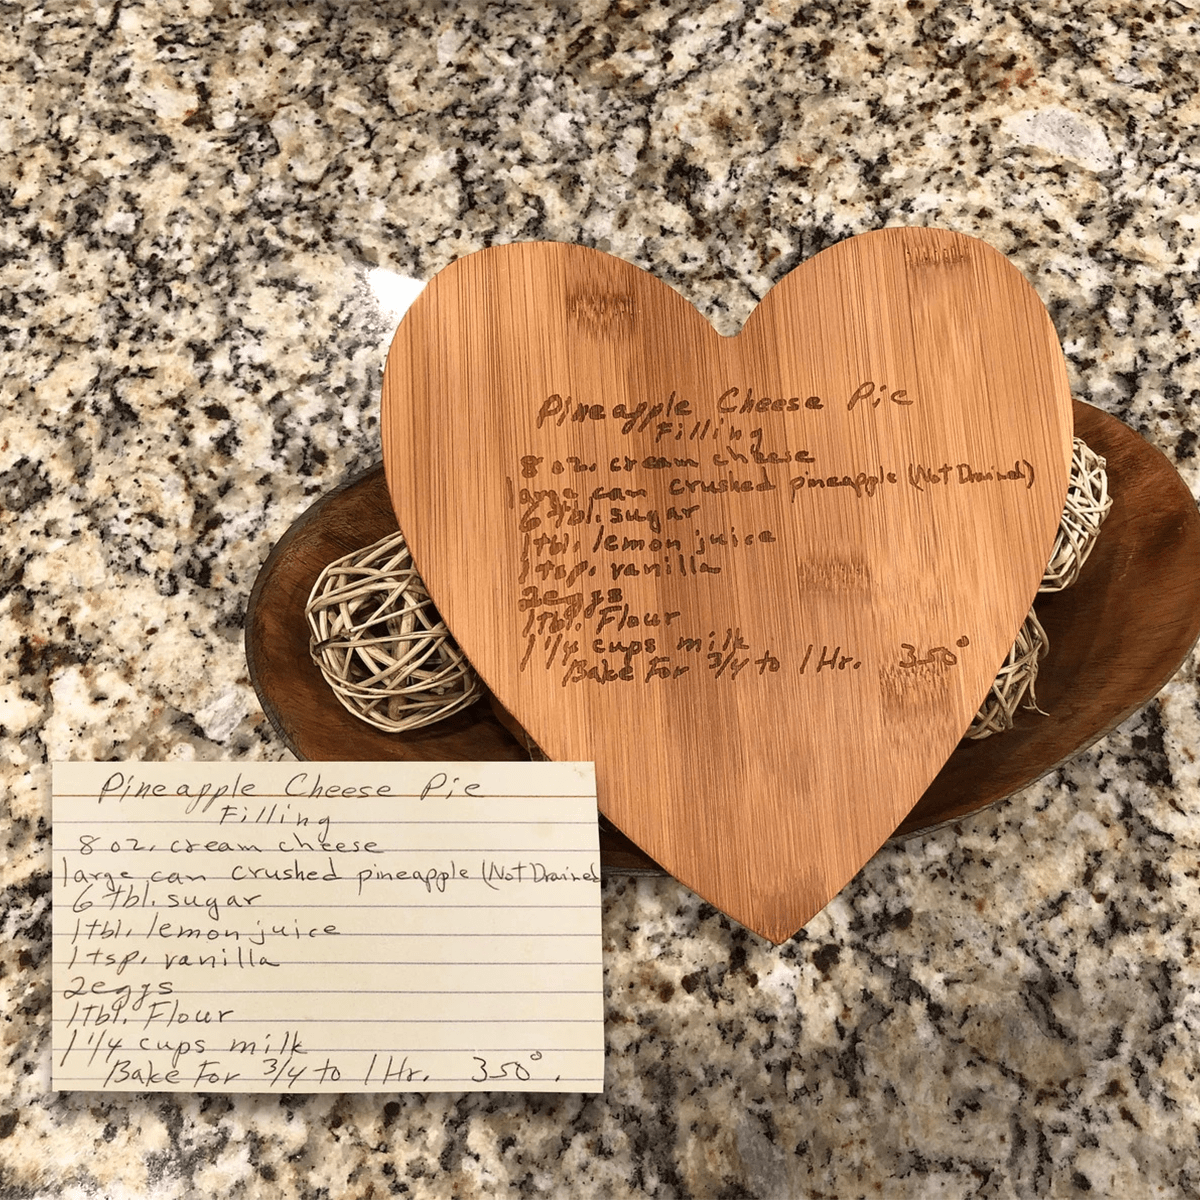 Pineapple Cheese Pie
Filling
8 oz. cream cheese
large can crushed pineapple (Not Drained)
6 tbl. sugar
1 tbl. lemon juice
1 tsp. vanilla
2 eggs
1 Tbl. Flour
1 1/4 cups milk
Bake For 3/4 to 1 Hr. 350°
Pineapple Cheese Pie
Filling
8 oz. cream cheese
large can crushed pineapple (Not Drained
6 tbl. sugar
1 tbl. lemon juice
1 tsp. vanilla
2 eggs
1 Tbl. Flour
1 1/4 cups milk
Bake For 3/4 to 1 Hr. 350°.